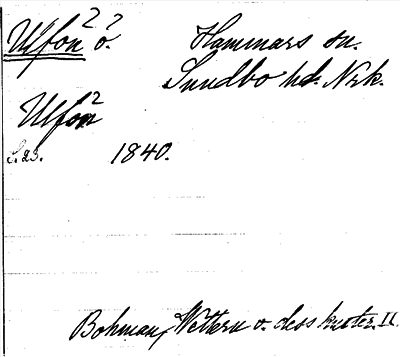 Ulfön² ö.?
Hammars sn.
Sundbo hd. Nrk.
Ulfön²
S. 23. 1840.
Bohman, Wettern o. dess kuster. II.